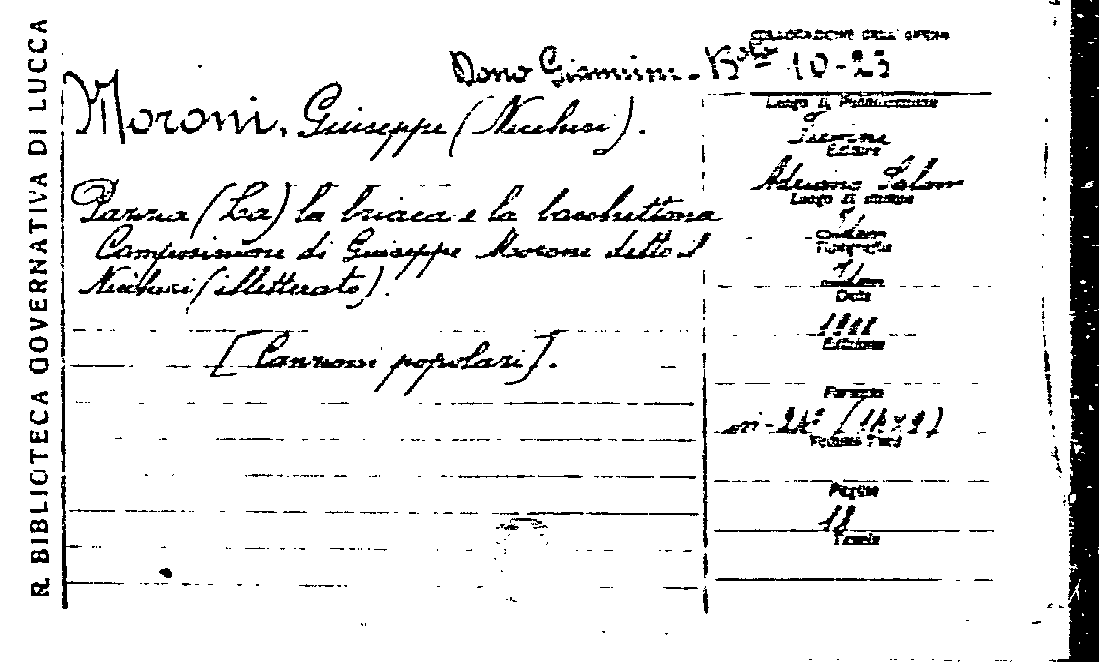 R. BIBLIOTECA GOVERNATIVA DI LUCCA
COLLOCAZIONE DELL'OPERA
Dono Giannini. Bta 10-23
Moroni, Giuseppe (Niccheri).
Pazza (La) la briaca e la bacchettona
Composizione di Giuseppe Moroni detto il
Niccheri (illetterato).
[Canzoni popolari].
Luogo di Pubblicazione
Firenze
Editore
Adriano Salani
Luogo di stampa
Idem
Tipografia
Idem
Data
Edizione
Formato
in-24°
Pagine
18
Tavole